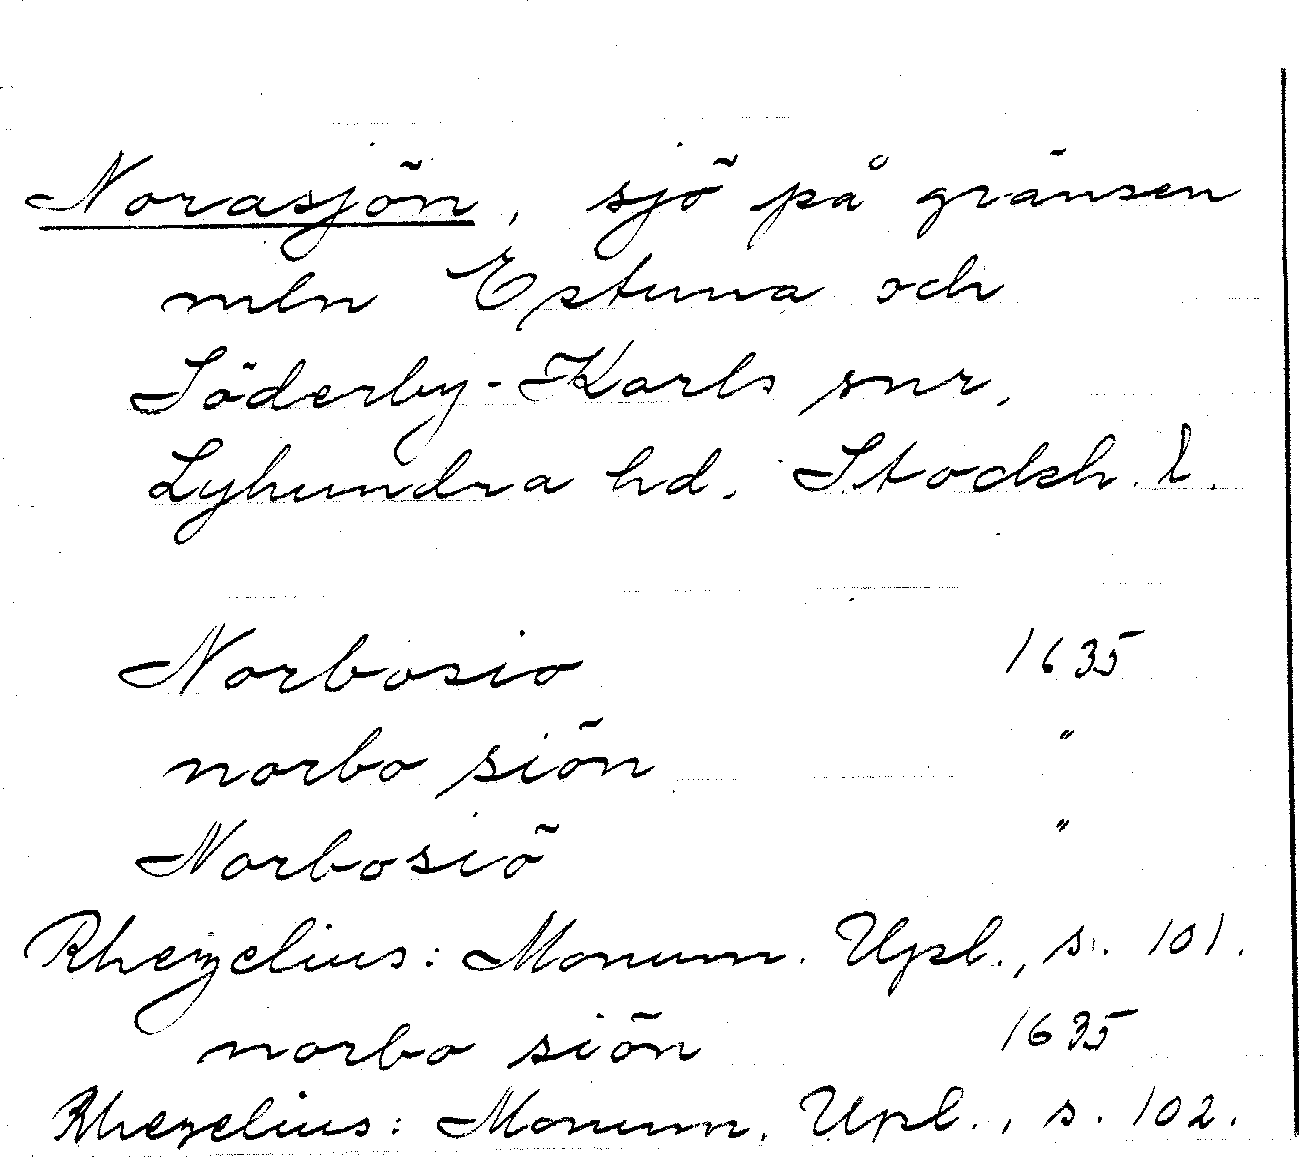 Norasjön, sjö på gränsen
mln Estuna och
Söderby-Karls snr,
Lyhundra hd. Stockh. l.
Norbosio 1635
norbo siön "
Norbosiö "
Rhezelius: Monum. Upl., s. 101.
norbo siön 1635
Rhezelius: Monum. Upl., s. 102.